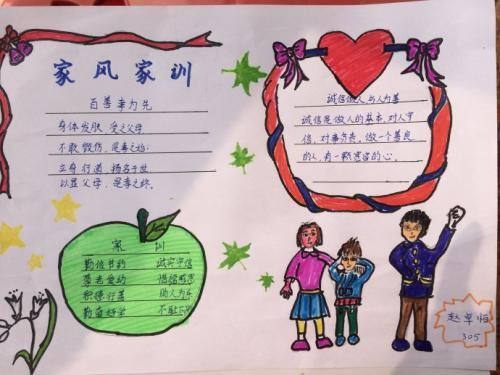 家风家训
百善孝为先
身体发肤，受之父母
不敢毁伤，是孝之始；
立身行道，扬名于世
以显父母，是孝之终。
诚信做人 与人为善
诚信是做人的基本，对人守
信，对事负责。做一个善良
的人，有一颗宽容的心。
家 训
勤俭节约 诚实守信
尊老爱幼
积德行善 助人为
勤奋好学 不耻下
赵卓
305